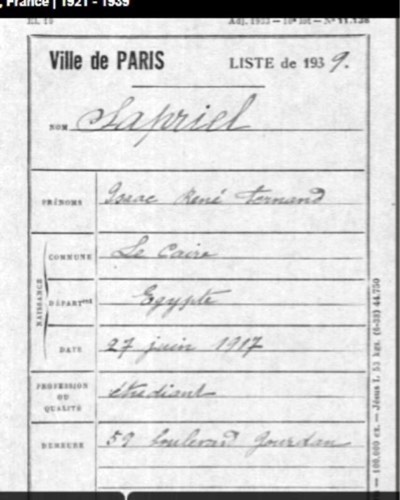 , France | 1921 - 1939
Ville de PARIS
LISTE de 1939.
NOM Sapriel
PRÉNOMS Isaac René Fernand
NAISSANCE
COMMUNE Le Caire
DÉPARTemt Egypte
DATE 27 juin 1917
PROFESSION OU QUALITÉ étudiant
DEMEURE 59 boulevard Jourdan
100.000 ex. — Jésus I, 53 kgs. (6-38) 44.750